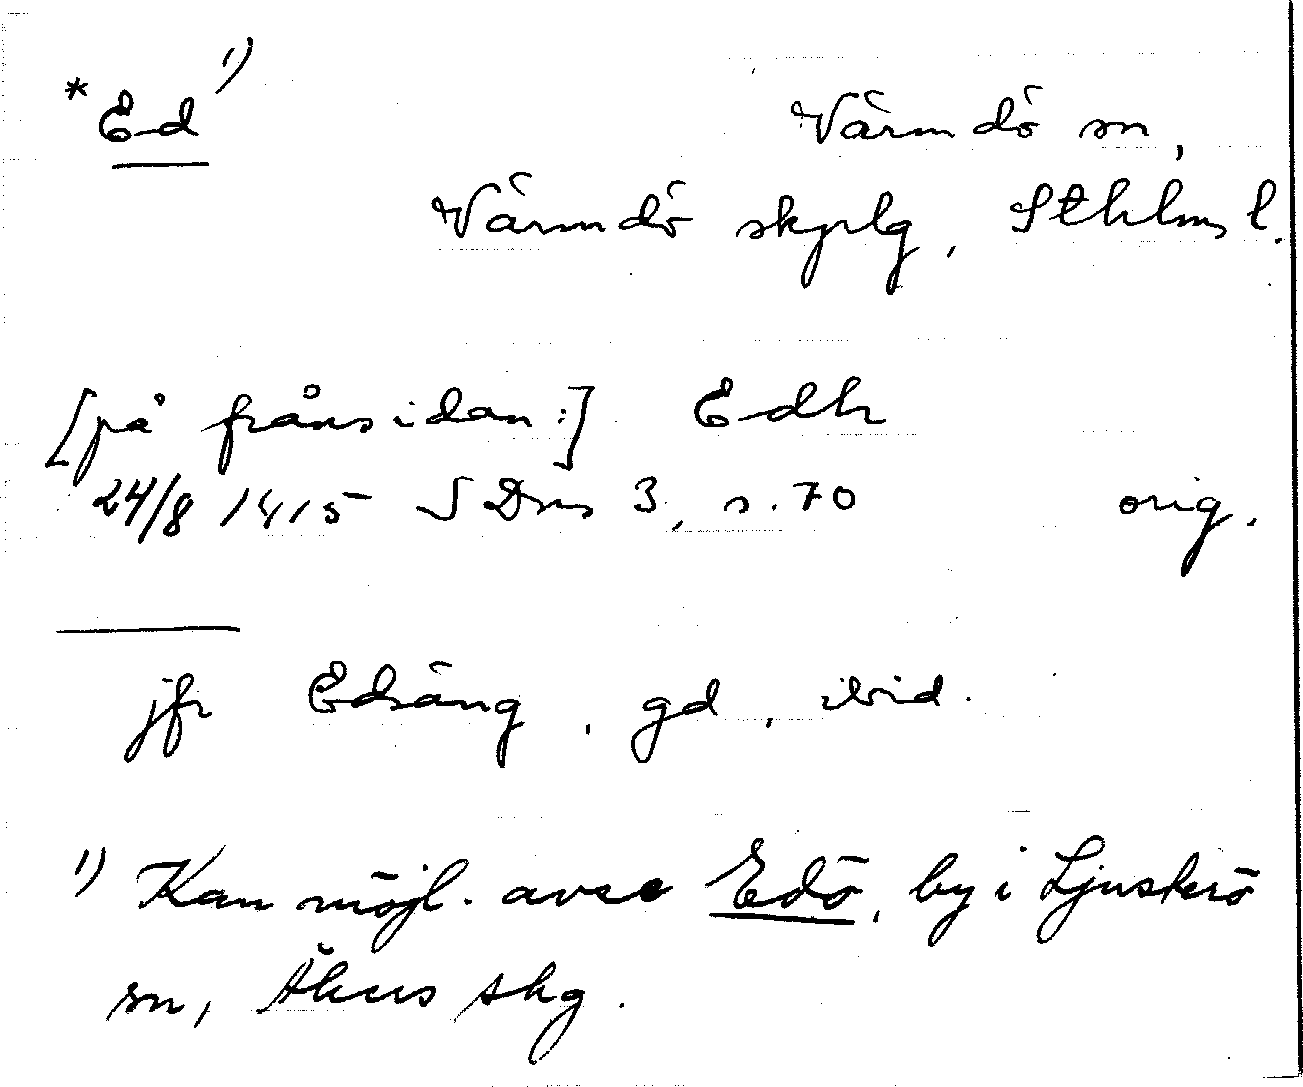 *Ed 1)
Värmdö sn,
Värmdö skplg, Sthlms l.
[på frånsidan:] Edh
24/8 1415 SDns 3, s. 70 orig.
jfr Edsäng, gd, ibid.
1) Kan möjl. avse Edö, by i Ljusterö
sn, Åkers skg.